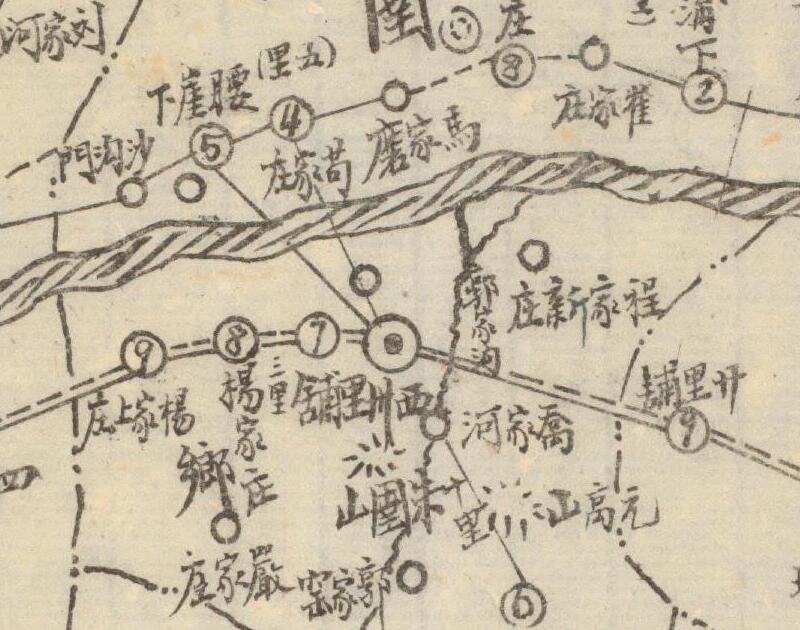 刘家河
圍
庄
溝下
(五里)
腰崖下
④
⑧
②
崔家庄
馬家磨
⑤
沙沟門
苟家庄
郭家沟
程家新庄
⑨
⑧
⑦
三里
西卅里舖
廿里舖
⑨
楊家上庄
楊家庄
喬家河
四
鄉
朱圍山
十里
元高山
嚴家庄
郭家窑
⑥